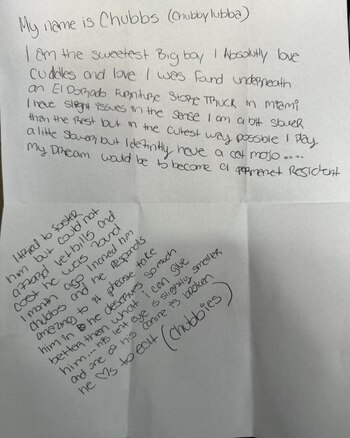 My name is Chubbs (Chubbylubba)
I am the sweetest Big boy I Absolutly love
cuddles and love I was found underneath
an El Dorzado Furniture Store Truck in miami
I have slight issues in the sense I am a bit slower
than the rest but in the cutest way possible I play
a little slower but I defintly have a cat mojo .....
my Dream would be to become a permenet Resident
I tried to foster
him but could not
afford vet bills and
cost he was found
1 month ago I named him
Chubbs and he responds
amazing to it please take
him in he deserves so much
better then what i can give
him... his left eye is slightly smaller
and one of his canine is broken
he ♡s to eat (chubbies)